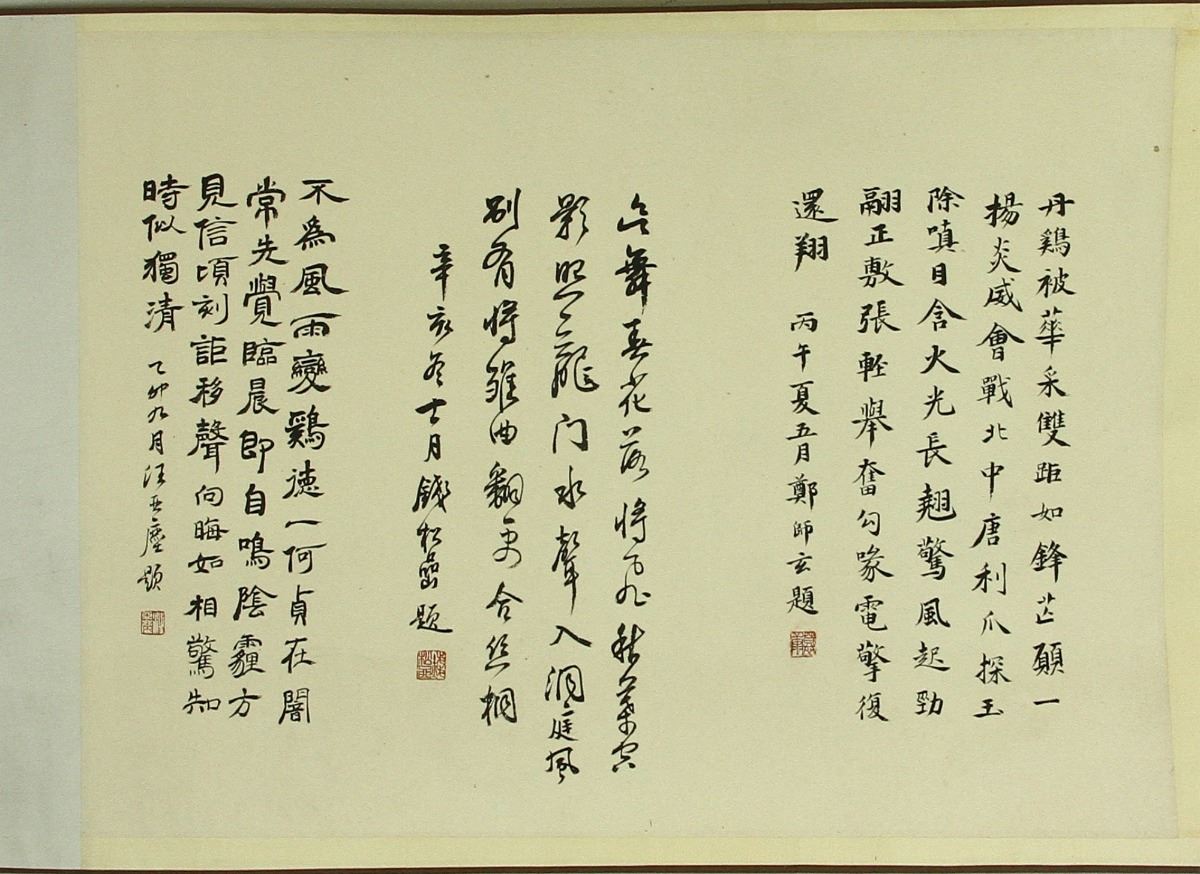 丹鷄被華采雙距如鋒芒願一
楊炎威會戰此中唐利爪探玉
除嗔目含火光長翹驚風起勁
翮正敷張輕舉奮勾喙電擊復
還翔 丙午夏五月鄭師玄題
欲舞春花落將飛秋葉空
影照龍门水聲入洞庭風
別有將雛曲翻更合絲桐
辛亥冬十一月錢松喦題
不爲風雨變鷄德一何貞在闇
常先覺臨晨即自鳴陰霾方
見信頃刻詎移聲向晦如相驚知
時似獨清 乙卯九月汪亞塵題